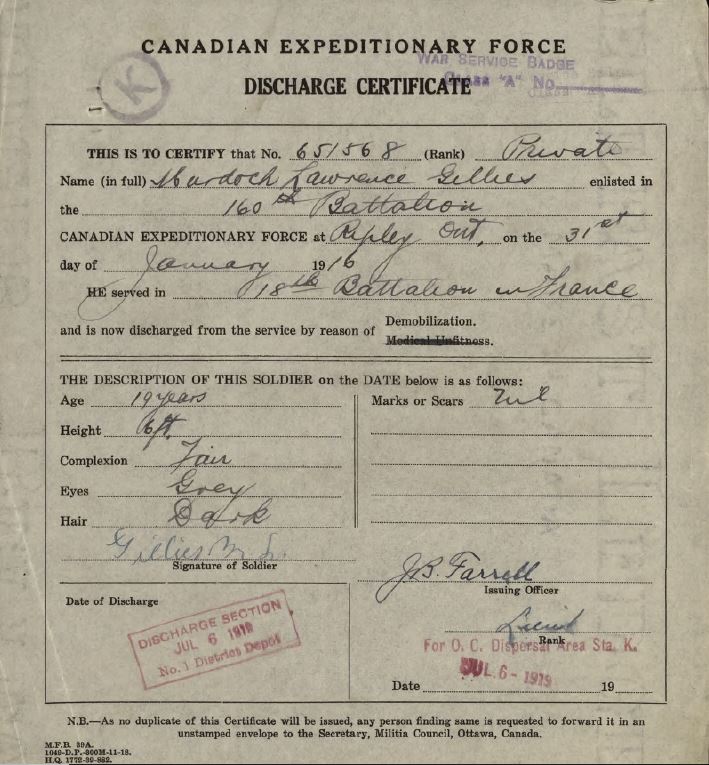 CANADIAN EXPEDITIONARY FORCE
WAR SERVICE BADGE
K
DISCHARGE CERTIFICATE
CLASS "A" No.
THIS IS TO CERTIFY that No. 651568 (Rank) Private
Name (in full) Murdoch Lawrence Gillies enlisted in
the 160th Battalion
CANADIAN EXPEDITIONARY FORCE at Ripley Ont. on the 31st
day of January 1916
HE served in 18th Battalion in France
and is now discharged from the service by reason of Demobilization.
Medical Unfitness.
THE DESCRIPTION OF THIS SOLDIER on the DATE below is as follows:
Age 19 years
Marks or Scars Nil
Height 6 ft.
Complexion Fair
Eyes Grey
Hair Dark
Gillies M. L.
Signature of Soldier
J.B. Farrell
Issuing Officer
Date of Discharge
DISCHARGE SECTION
JUL 6 1919
No. 1 District Depot
Lieut
Rank
For O. C. Dispersal Area Sta. K.
JUL 6 - 1919
Date 19
N.B.—As no duplicate of this Certificate will be issued, any person finding same is requested to forward it in an
unstamped envelope to the Secretary, Militia Council, Ottawa, Canada.
M.F.B. 39A.
1049-D.P.-300M-11-18.
H.Q. 1772-39-882.